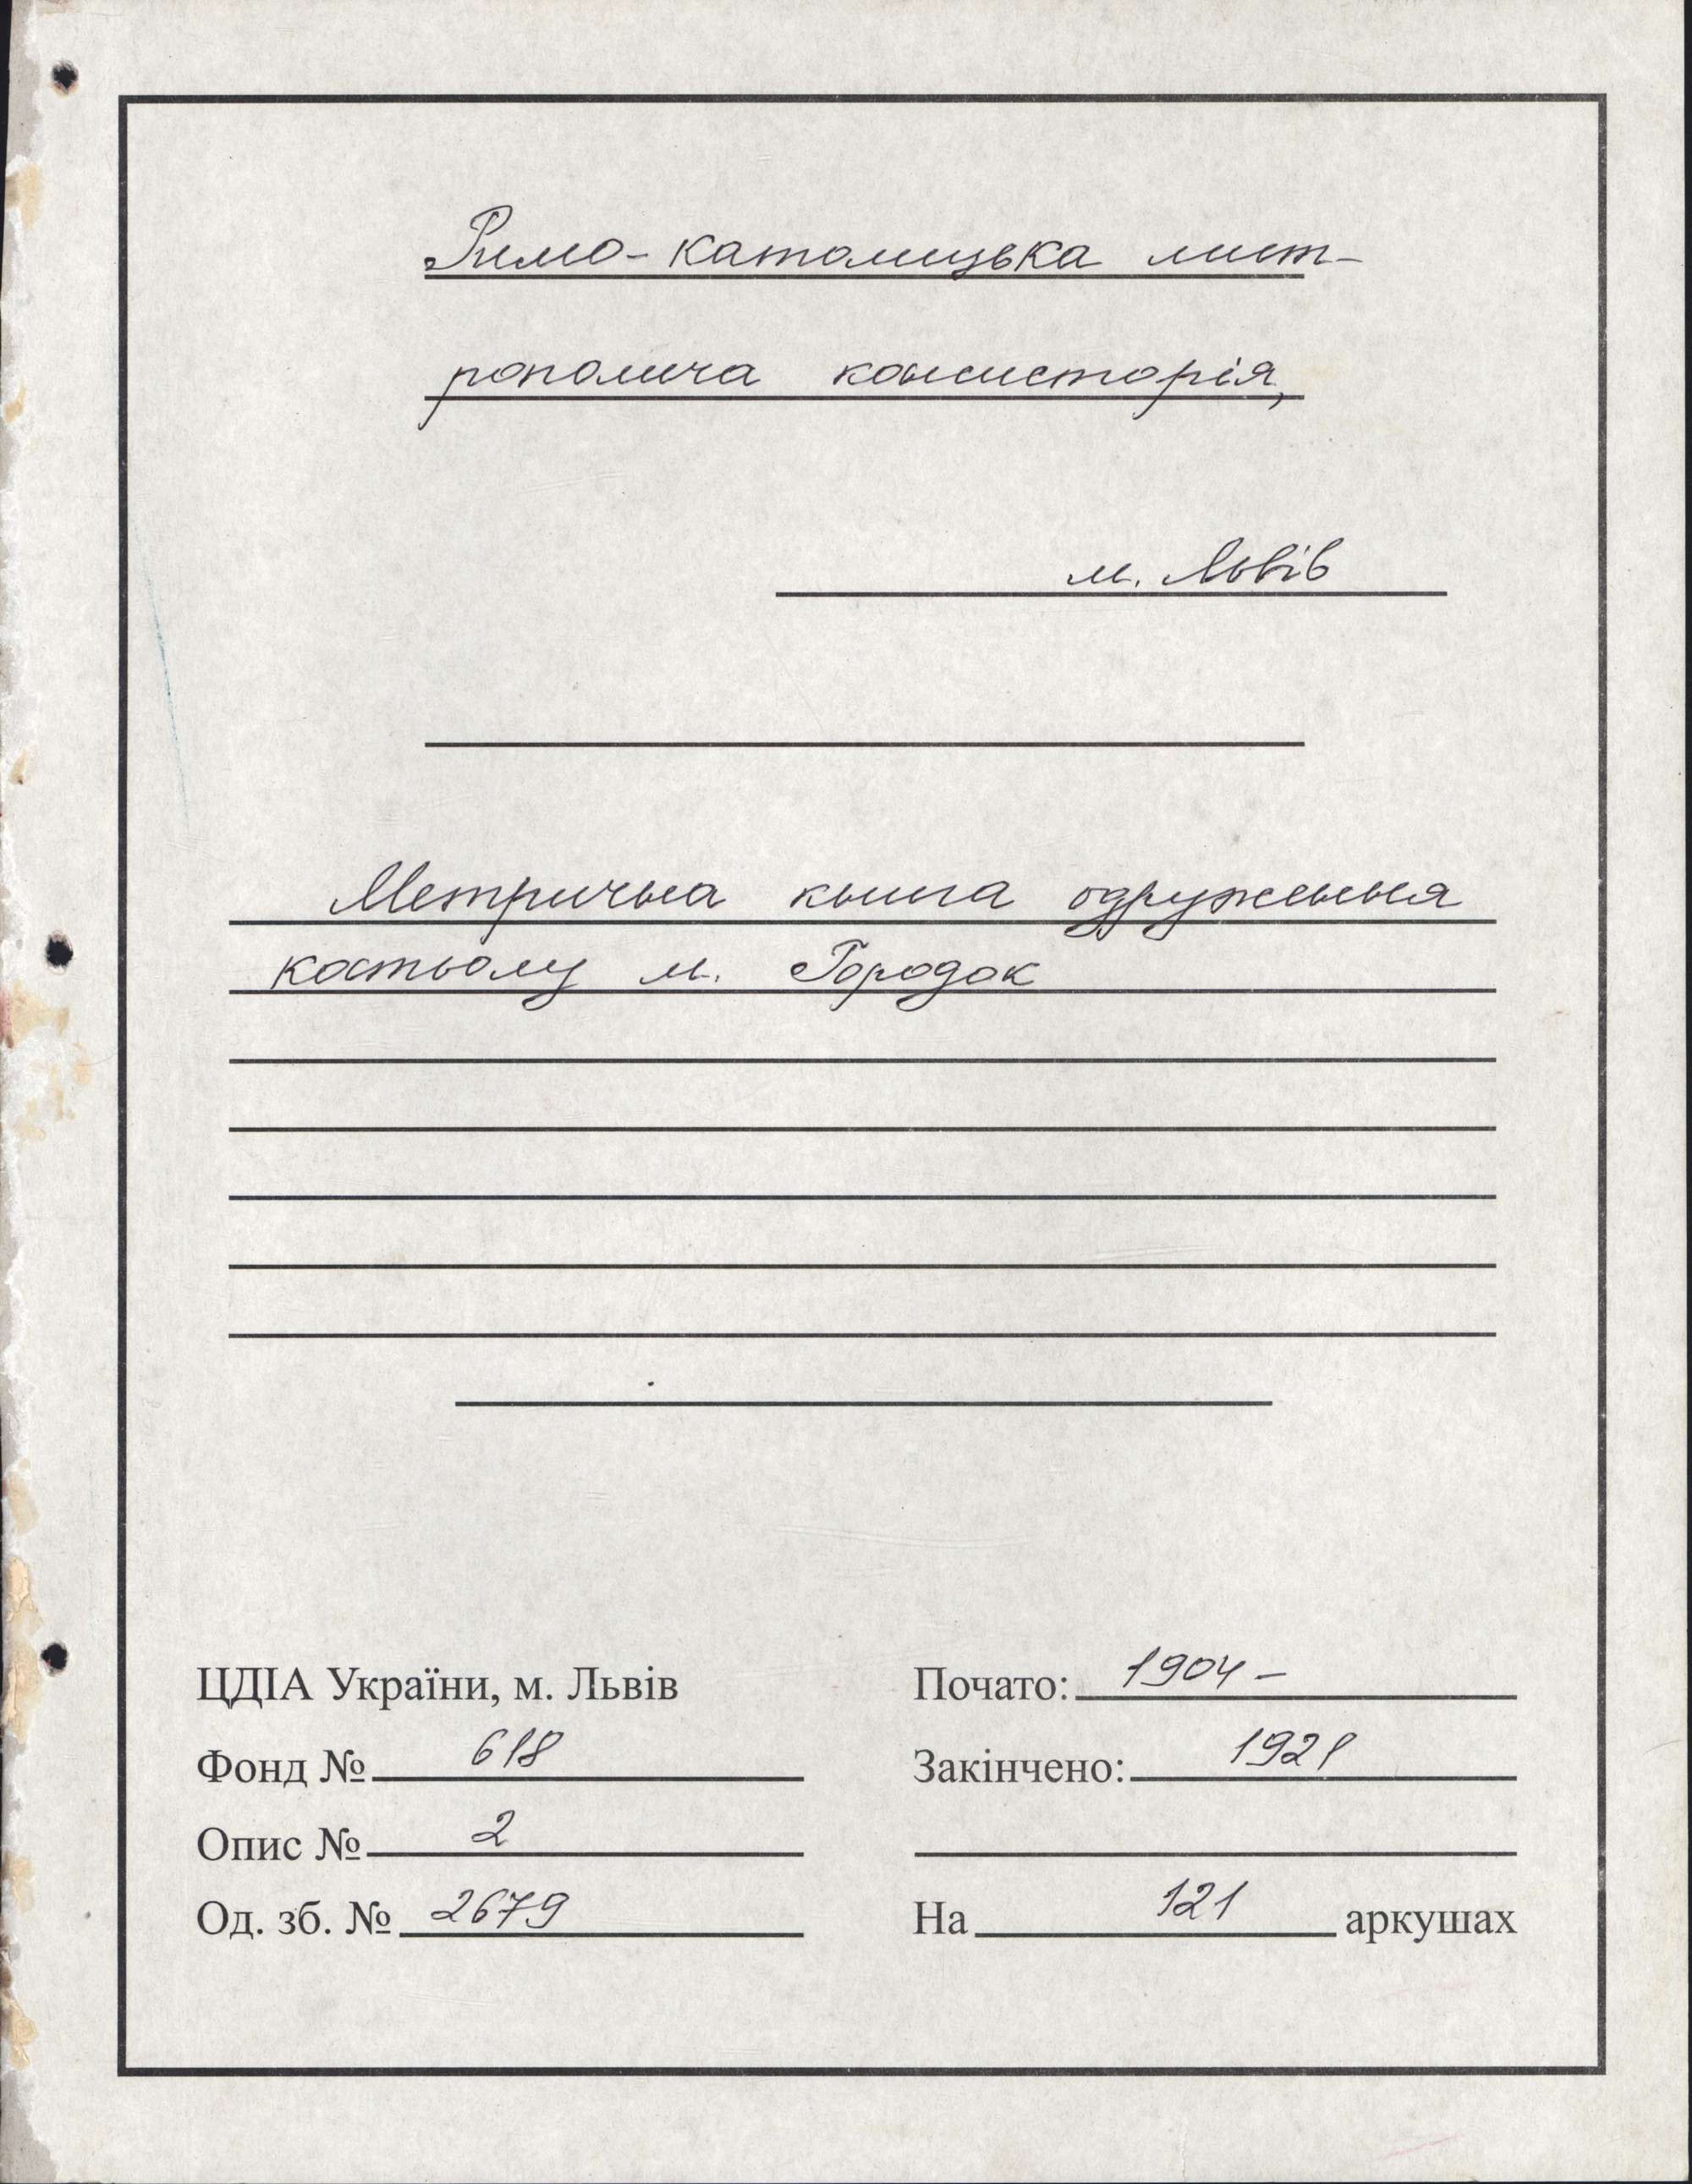 Римо-католицька мит-
рополича консисторія,
м. Львів
Метрична книга одруження
костьолу м. Городок
ЦДІА України, м. Львів
Почато: 1904 –
Фонд № 618
Закінчено: 1921
Опис № 2
Од. зб. № 2679
На 121 аркушах